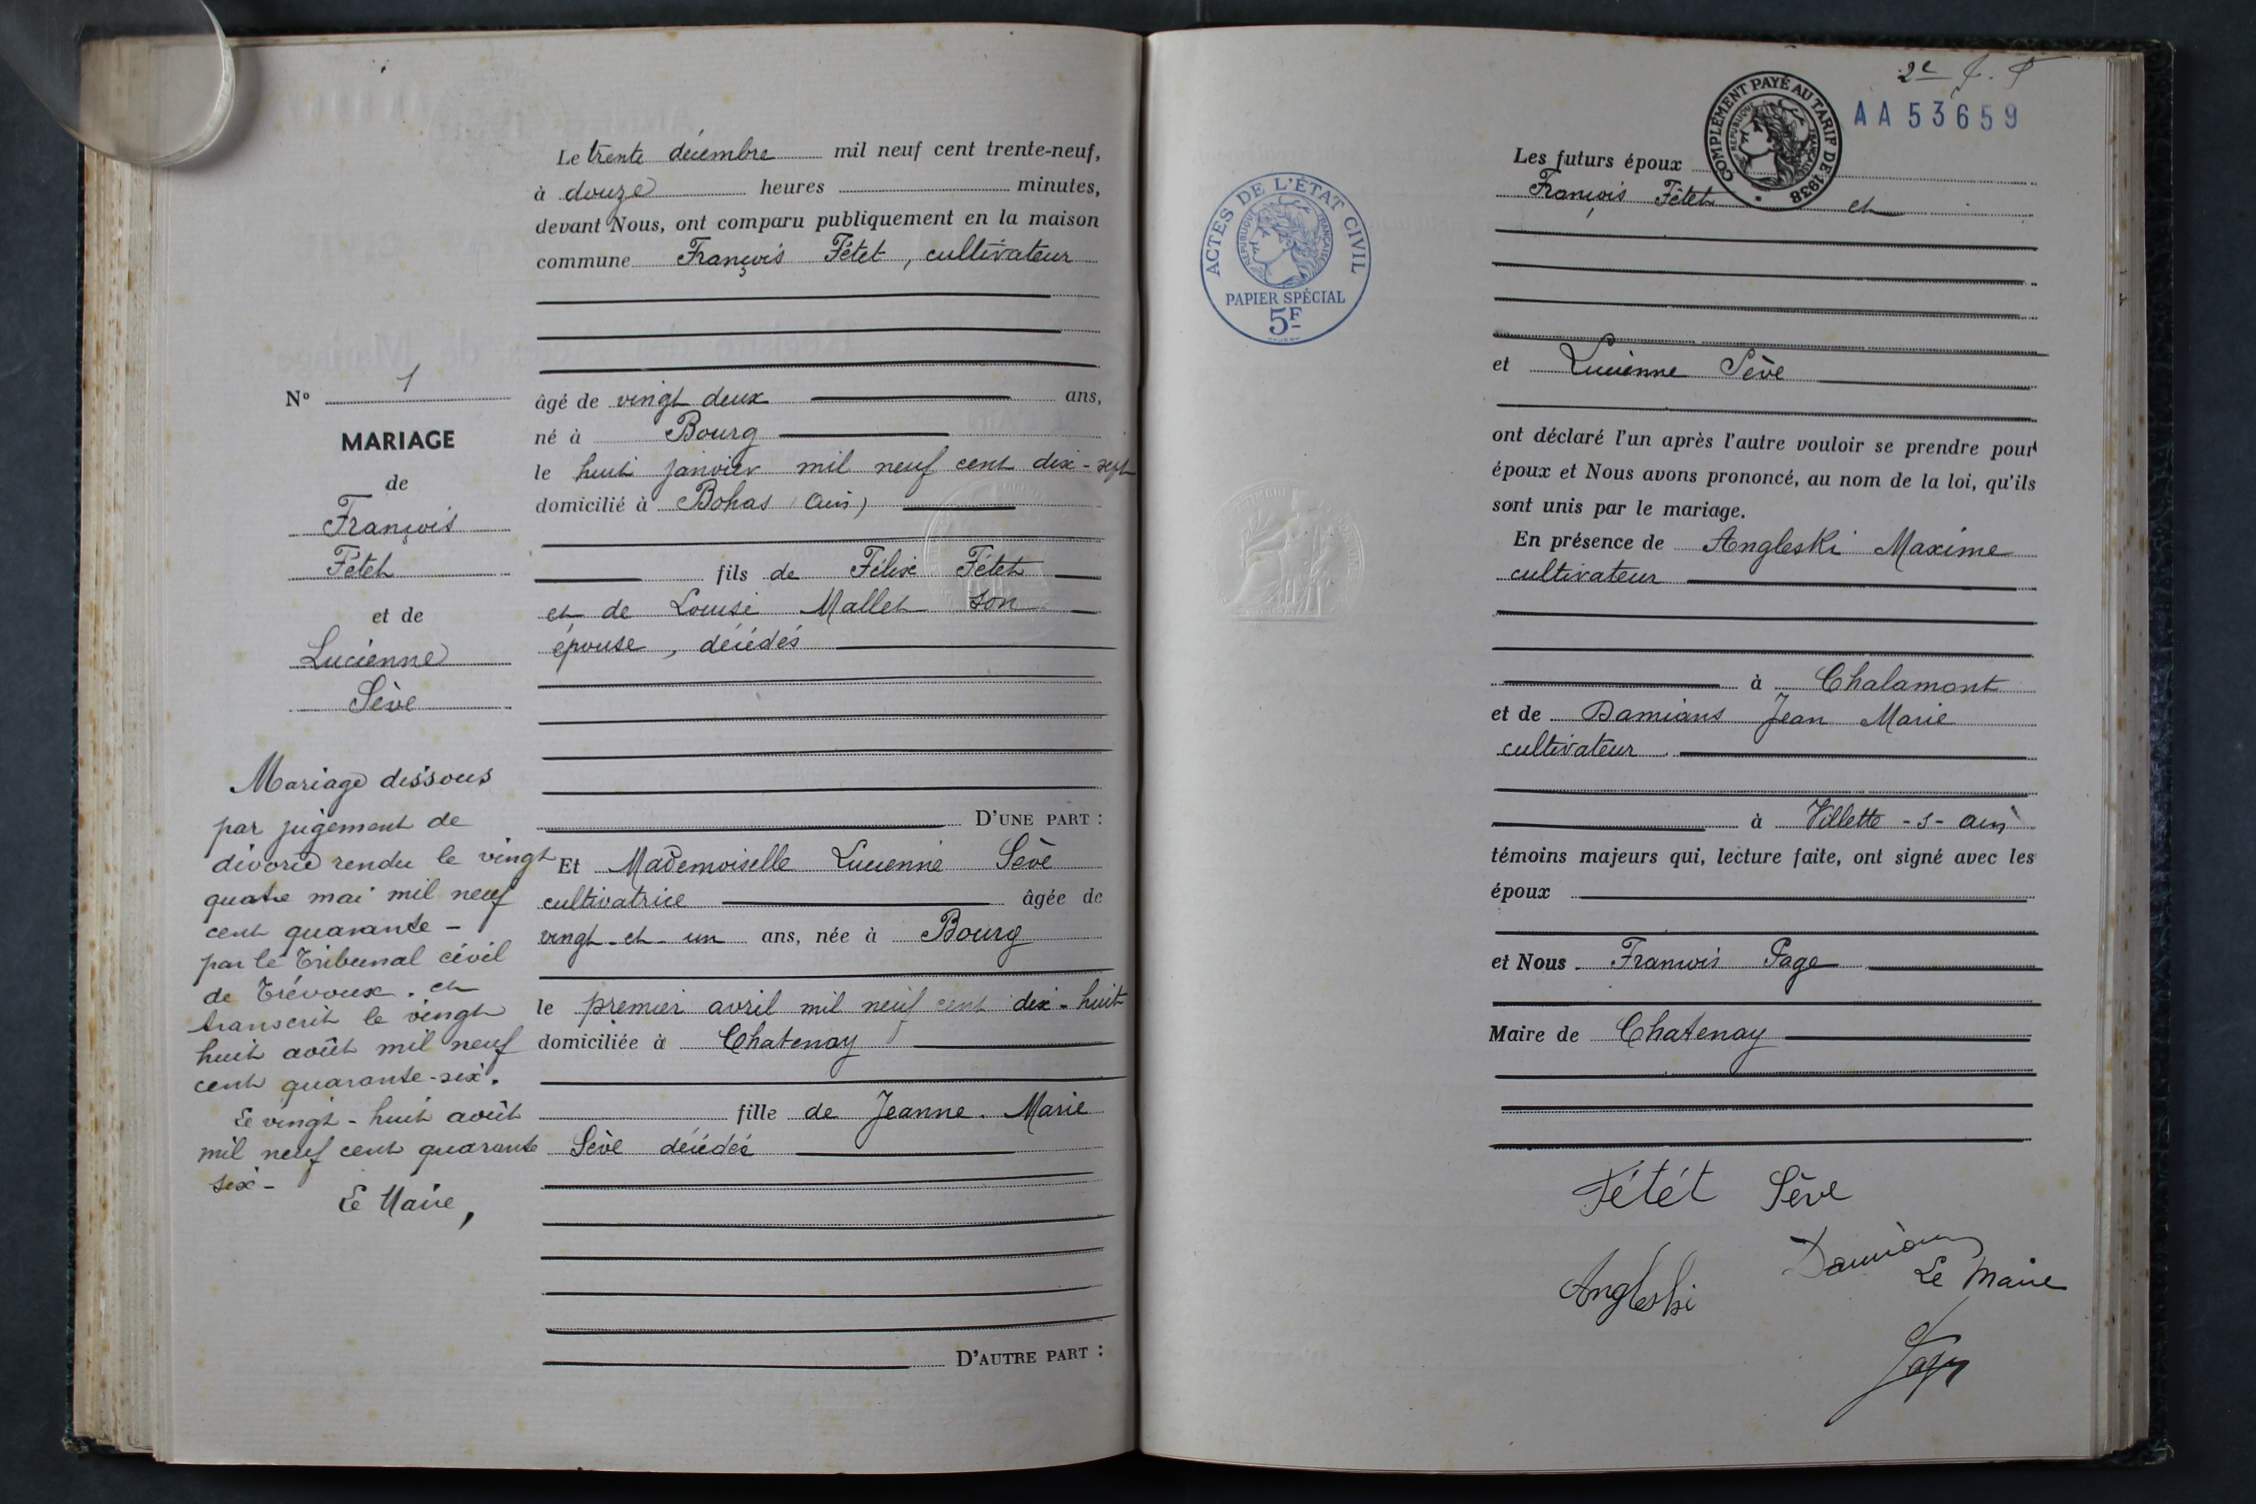 Le trente décembre mil neuf cent trente-neuf,
à douze heures minutes,
devant Nous, ont comparu publiquement en la maison
commune François Fétet, cultivateur
âgé de vingt deux ans,
né à Bourg
le huit janvier mil neuf cent dix-sept
domicilié à Bohas (Ain)
fils de Félix Fétet
et de Louise Mallet son
épouse, décédés
D'UNE PART :
Et Mademoiselle Lucienne Sève
cultivatrice âgée de
vingt-et-un ans, née à Bourg
le premier avril mil neuf cent dix-huit
domiciliée à Chatenay
fille de Jeanne-Marie
Sève décédée
D'AUTRE PART :
N° 1
MARIAGE
de
François
Fétet
et de
Lucienne
Sève
Mariage dissous
par jugement de
divorce rendu le vingt
quatre mai mil neuf
cent quarante-
par le Tribunal civil
de Trévoux. et
transcrit le vingt
huit août mil neuf
cent quarante-six.
Le vingt-huit août
mil neuf cent quarante
six-
Le Maire,
ACTES DE L'ÉTAT CIVIL
RÉPUBLIQUE FRANÇAISE
PAPIER SPÉCIAL
5F
COMPLÉMENT PAYÉ AU TARIF DE 1938
RÉPUBLIQUE FRANÇAISE
2e
AA53659
Les futurs époux
François Fétet et
et Lucienne Sève
ont déclaré l'un après l'autre vouloir se prendre pour
époux et Nous avons prononcé, au nom de la loi, qu'ils
sont unis par le mariage.
En présence de Angleski Maxime
cultivateur
à Chalamont
et de Damians Jean Marie
cultivateur
à Villette-s-ain
témoins majeurs qui, lecture faite, ont signé avec les
époux
et Nous François Page
Maire de Chatenay
Fétét Sève
Damians
Le Maire
Angleski
Page